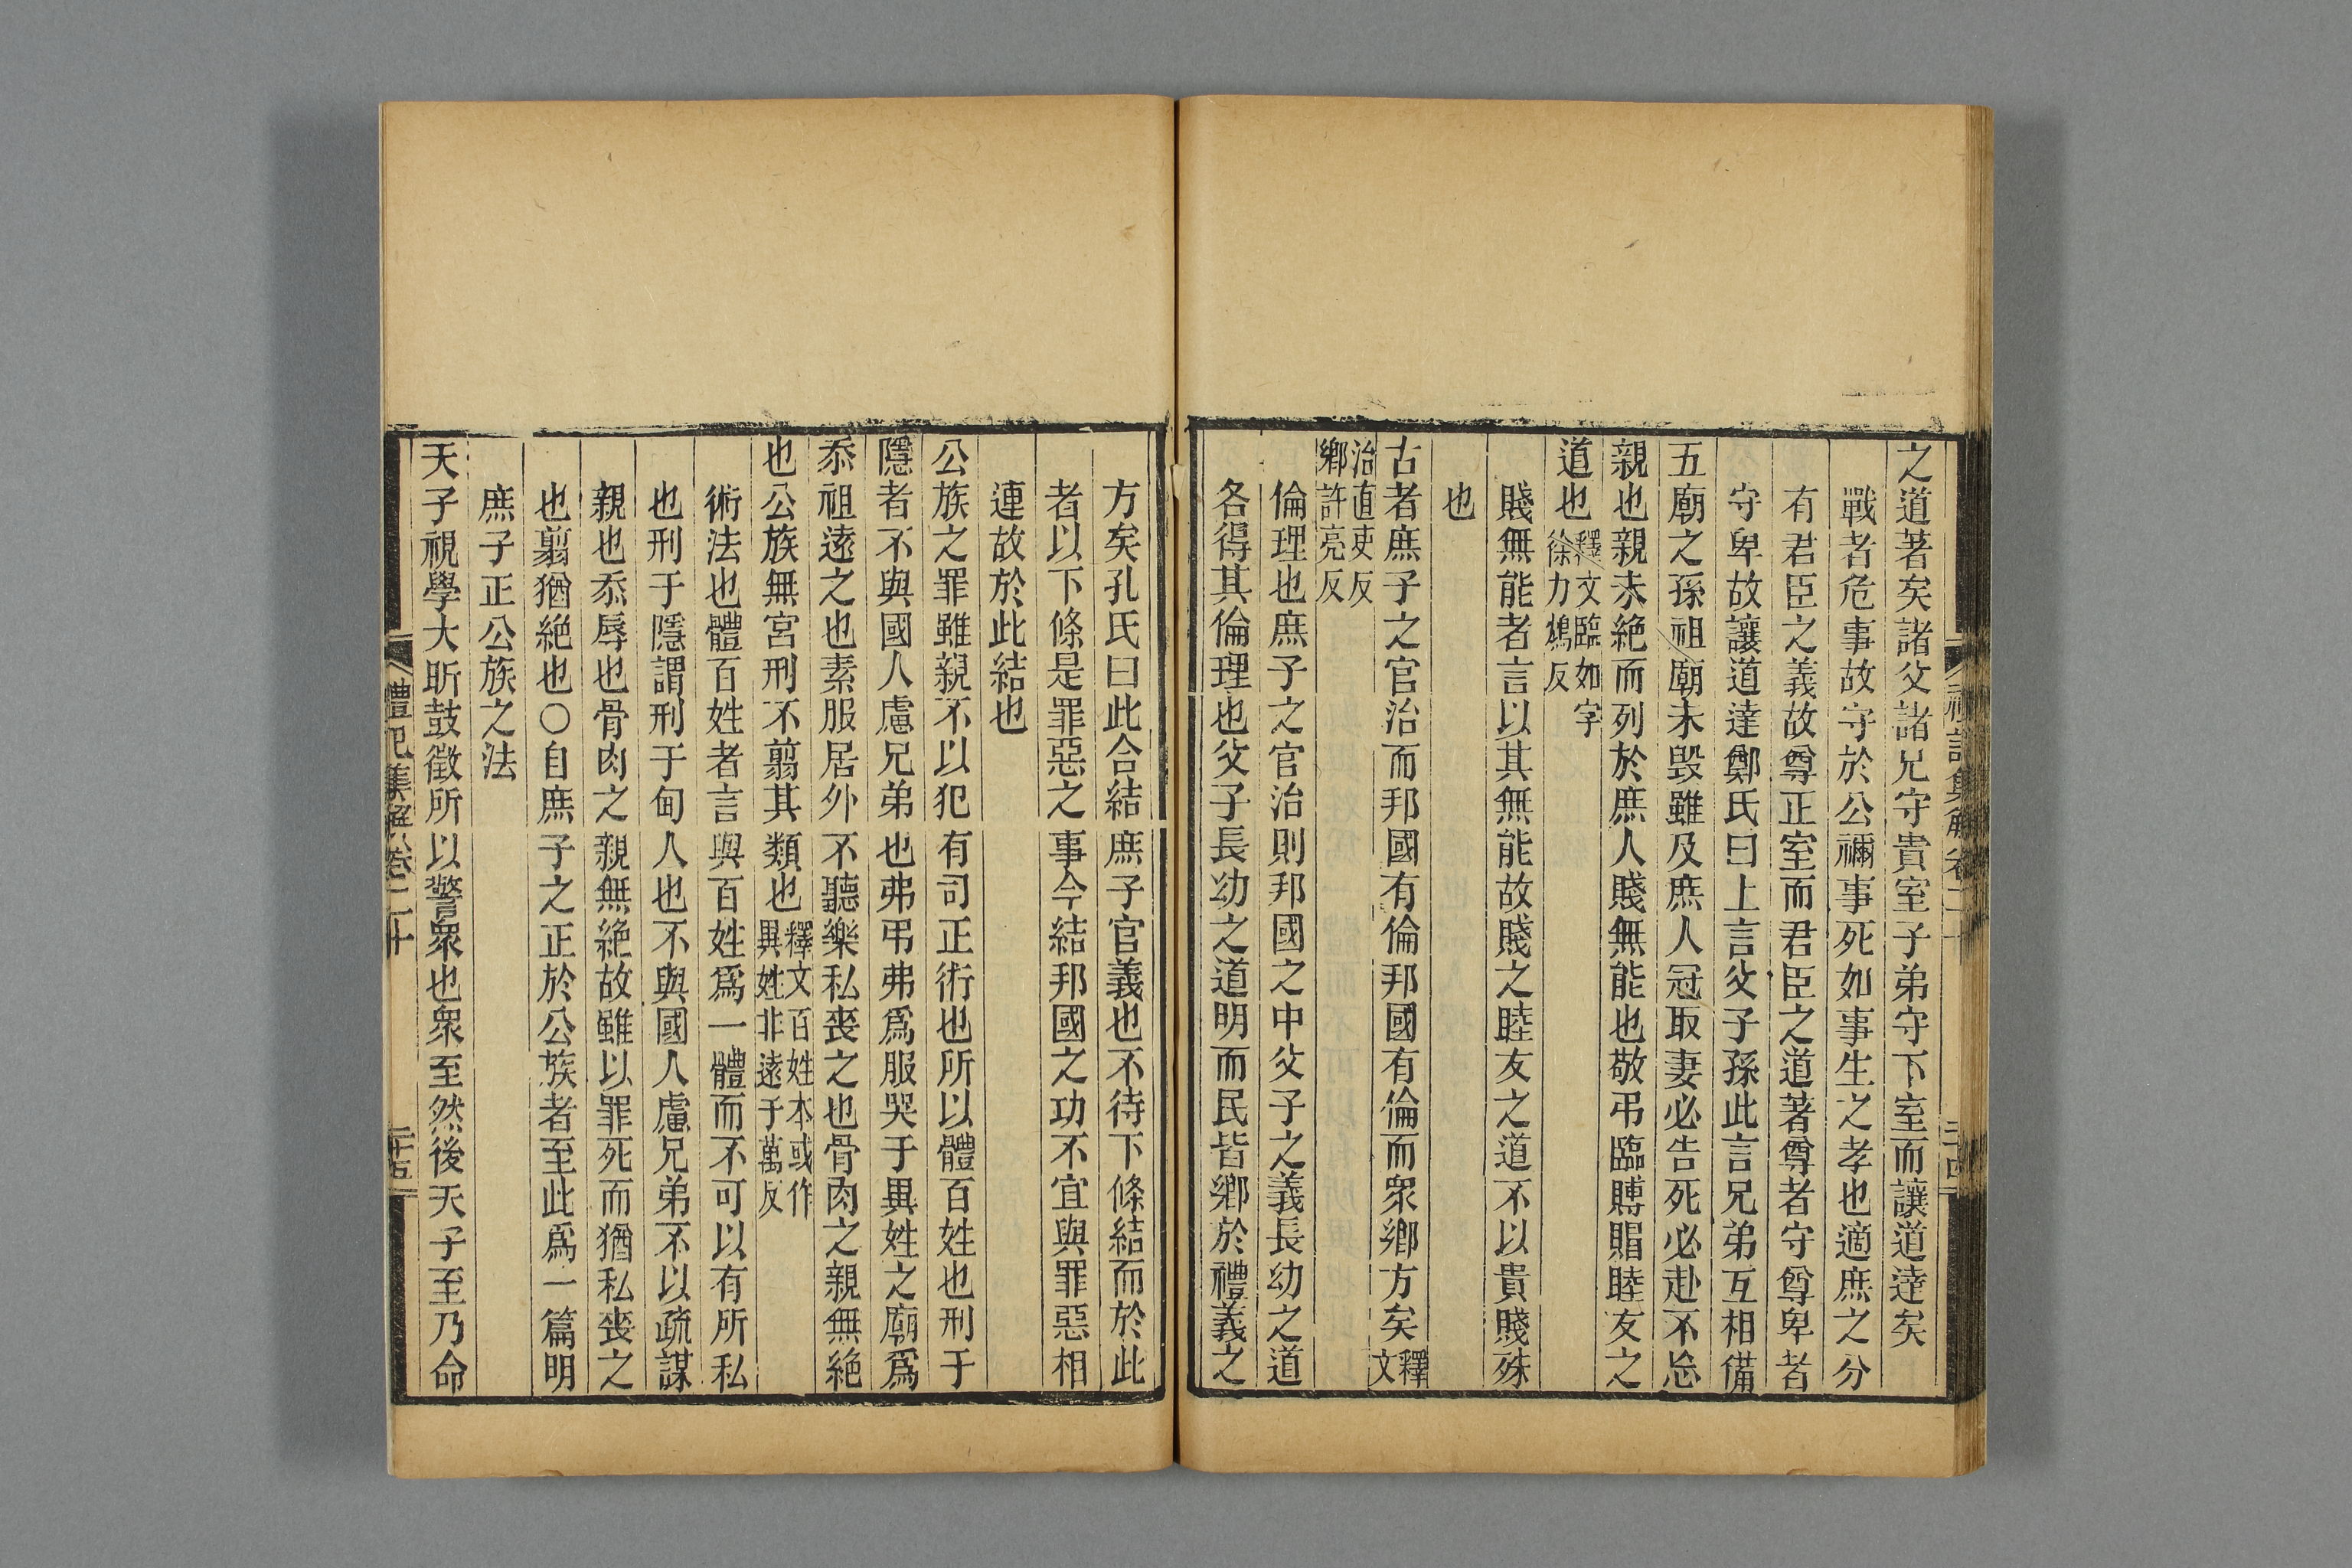 之道著矣諸父諸兄守貴室子弟守下室而讓道達矣
戰者危事故守於公禰事死如事生之孝也適庶之分
有君臣之義故尊正室而君臣之道著尊者守尊卑者
守卑故讓道達鄭氏曰上言父子孫此言兄弟互相備
五廟之孫祖廟未毀雖及庶人冠取妻必告死必赴不忘
親也親未絕而列於庶人賤無能也敬弔臨賻賵睦友之
道也釋文臨如字徐力鴆反
賤無能者言以其無能故賤之睦友之道不以貴賤殊
也
古者庶子之官治而邦國有倫邦國有倫而衆鄉方矣釋文
治直吏反鄉許亮反
倫理也庶子之官治則邦國之中父子之義長幼之道
各得其倫理也父子長幼之道明而民皆鄉於禮義之
方矣孔氏曰此合結庶子官義也不待下條結而於此
者以下條是罪惡之事今結邦國之功不宜與罪惡相
連故於此結也
公族之罪雖親不以犯有司正術也所以體百姓也刑于
隱者不與國人慮兄弟也弗弔弗爲服哭于異姓之廟爲
忝祖遠之也素服居外不聽樂私喪之也骨肉之親無絕
也公族無宮刑不翦其類也釋文百姓本或作異姓非遠于萬反
術法也體百姓者言與百姓爲一體而不可以有所私
也刑于隱謂刑于甸人也不與國人慮兄弟不以疏謀
親也忝辱也骨肉之親無絕故雖以罪死而猶私喪之
也翦猶絕也○自庶子之正於公族者至此爲一篇明
庶子正公族之法
天子視學大昕鼓徵所以警衆也衆至然後天子至乃命
禮記集解卷二十
二十五